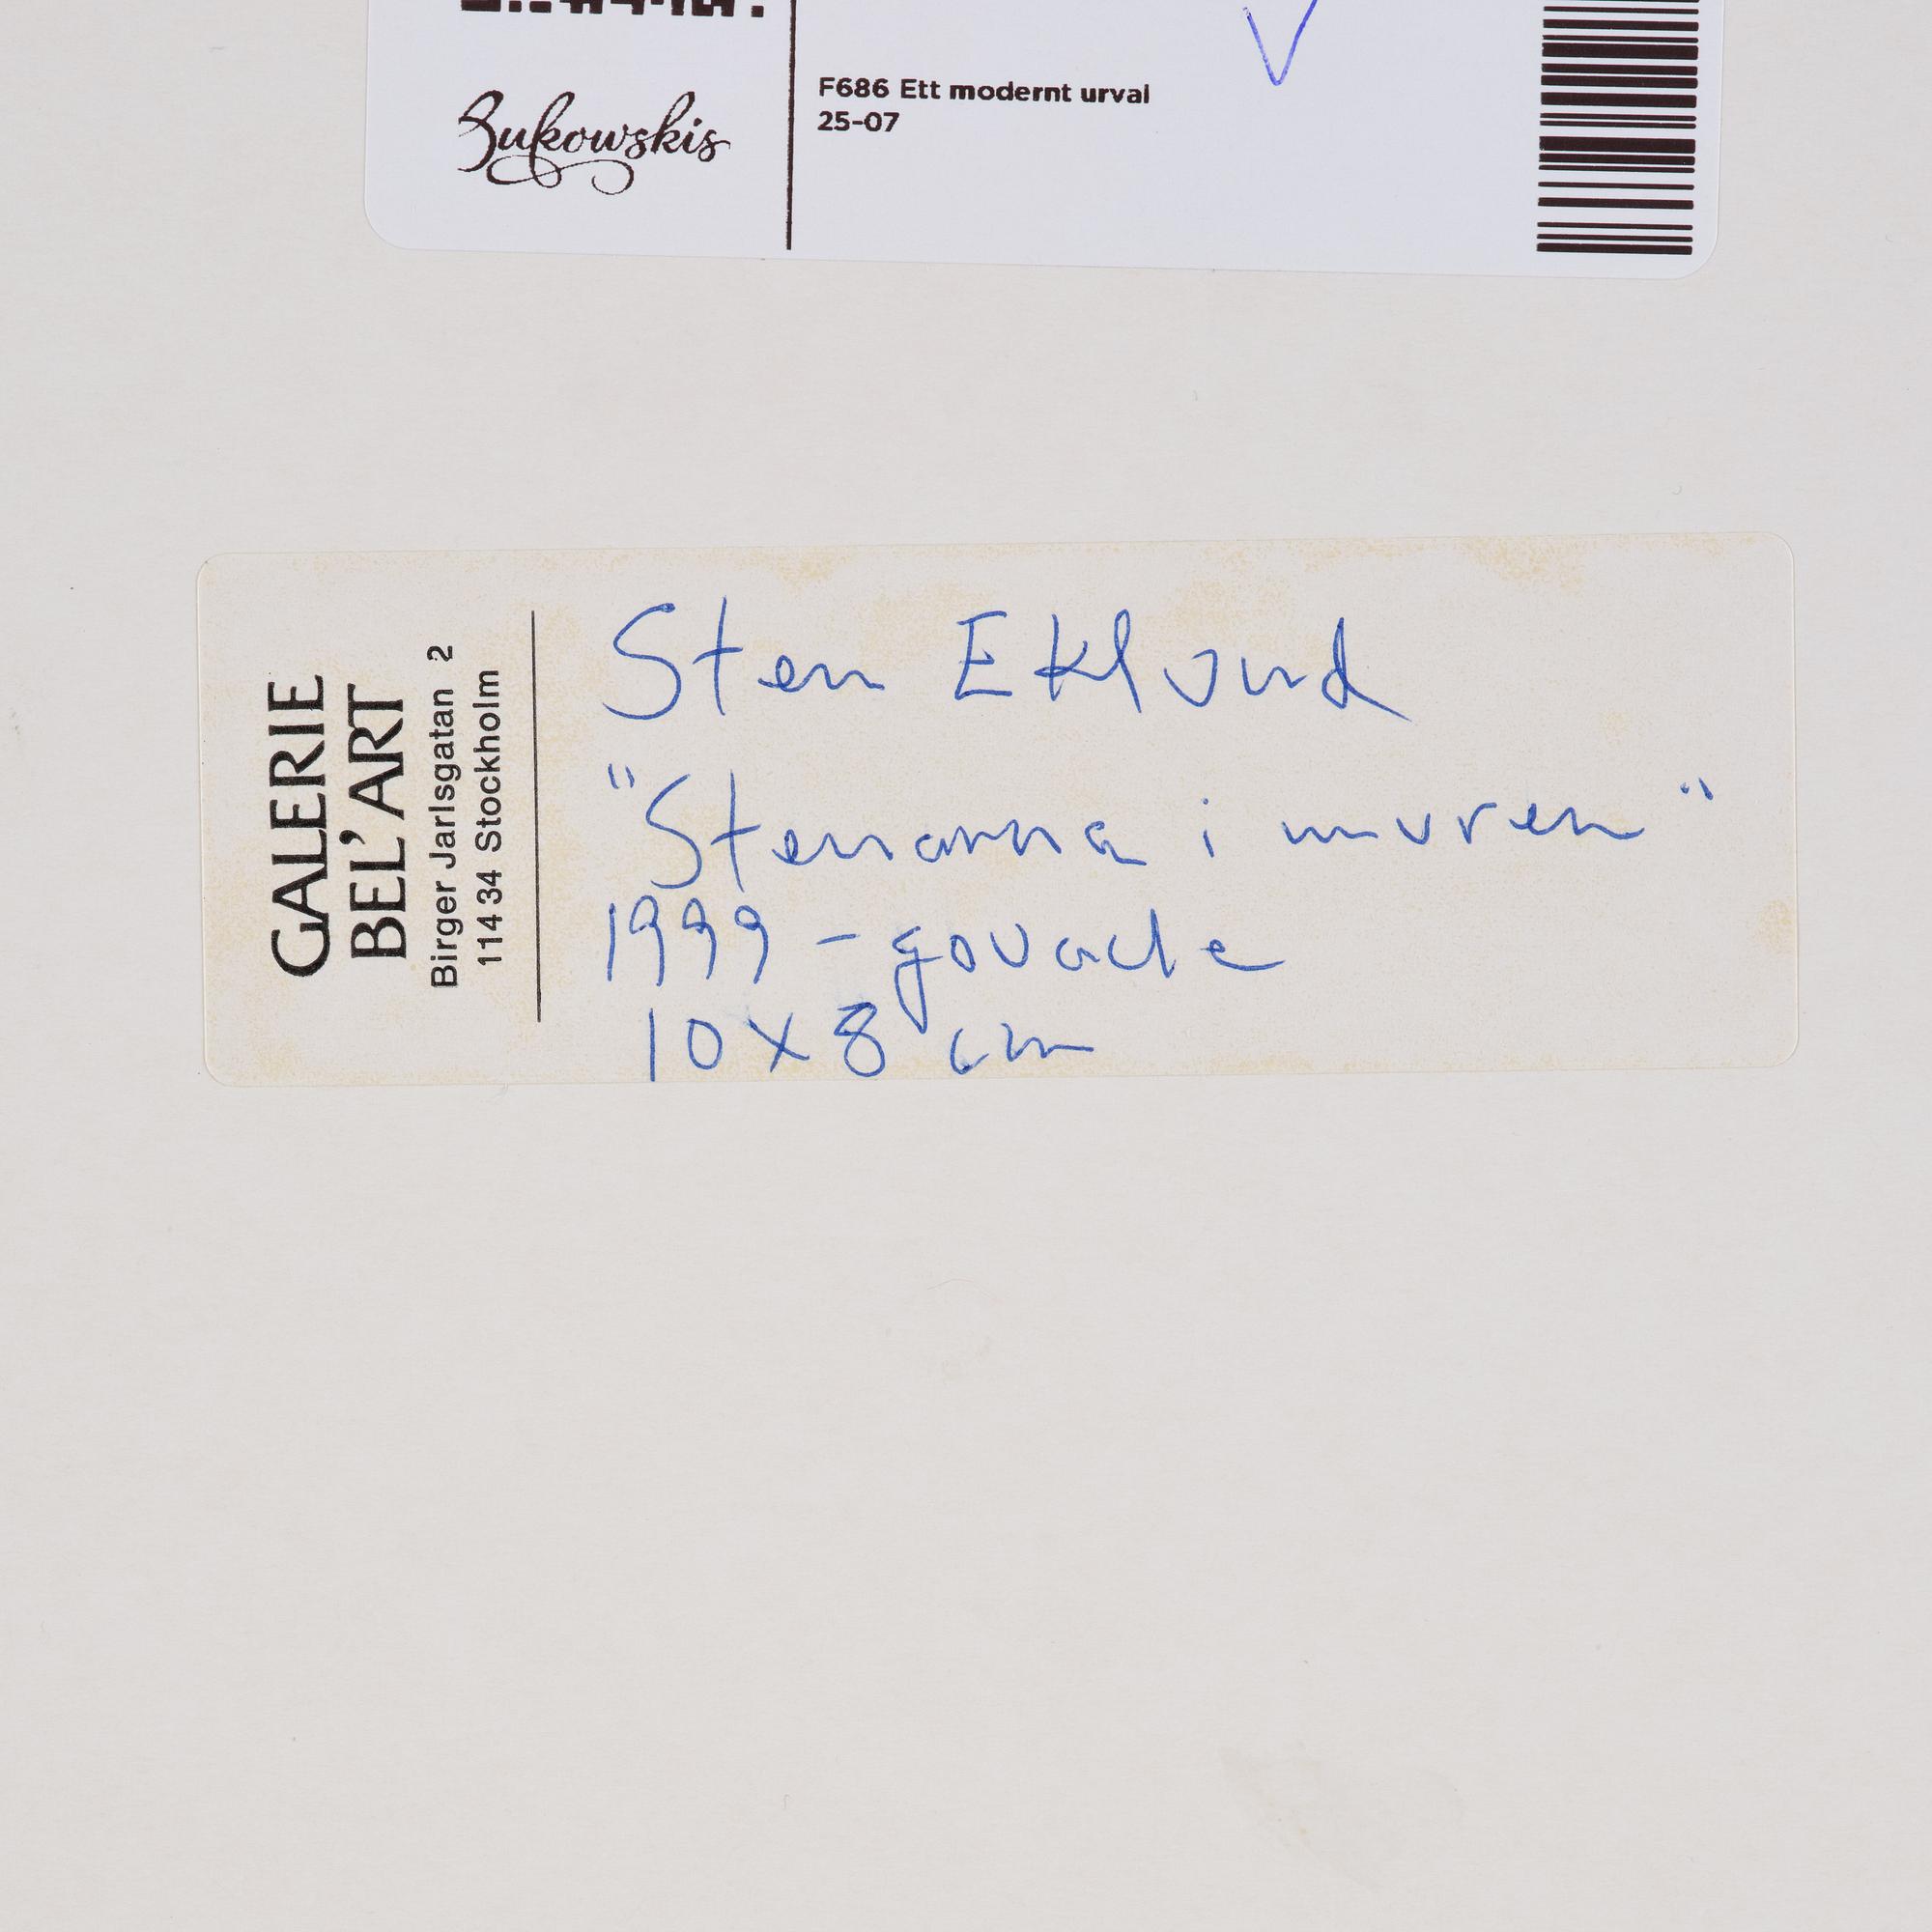 Bukowskis
F686 Ett modernt urval
25-07
GALERIE
BEL'ART
Birger Jarlsgatan 2
114 34 Stockholm
Sten Eklund
"Stenarna i muren"
1999 - gouache
10 x 8 cm